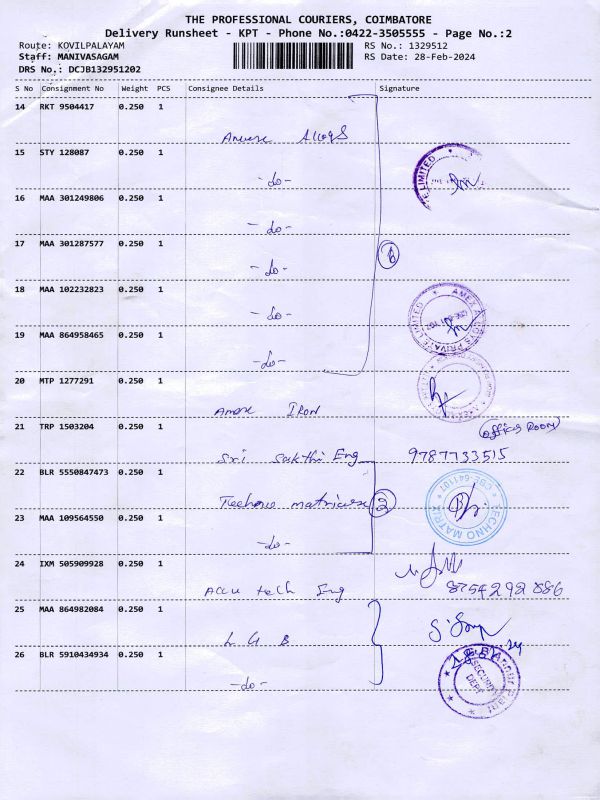 THE PROFESSIONAL COURIERS, COIMBATORE
Delivery Runsheet - KPT - Phone No.:0422-3505555 - Page No.:2
Route: KOVILPALAYAM RS No.: 1329512
Staff: MANIVASAGAM RS Date: 28-Feb-2024
DRS No.: DCJB132951202
S No Consignment No Weight PCS Consignee Details Signature
14 RKT 9504417 0.250 1
Alloys
15 STY 128087 0.250 1
-do-
16 MAA 301249806 0.250 1
-do-
17 MAA 301287577 0.250 1
-do-
6
18 MAA 102232823 0.250 1
-do-
AMEX ALLOYS PRIVATE LIMITED
19 MAA 864958465 0.250 1
-do-
20 MTP 1277291 0.250 1
Iron
21 TRP 1503204 0.250 1
office Room
Sri Sakthi Eng 9787733515
22 BLR 5550847473 0.250 1
2
TECHNO MATRIX CBE-641107
23 MAA 109564550 0.250 1
-do-
24 IXM 505909928 0.250 1
Accu tech Eng 8754292886
25 MAA 864982084 0.250 1
L G B
26 BLR 5910434934 0.250 1
-do-
SECURITY DEPT